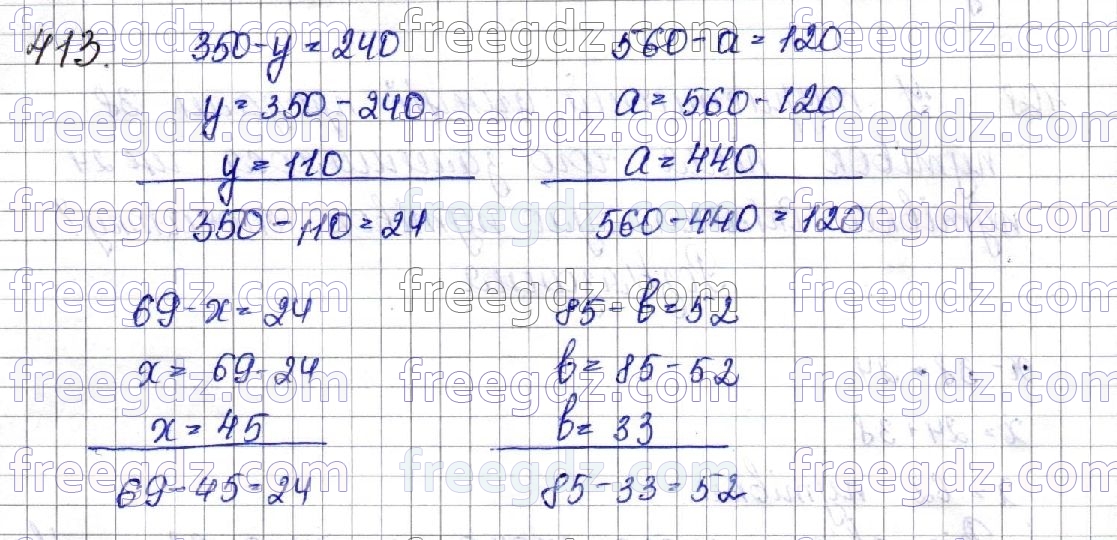 413. 350-y=240 560-a=120
y=350-240 a=560-120
y=110 a=440
350-110=24 560-440=120
69-x=24 85-b=52
x=69-24 b=85-52
x=45 b=33
69-45=24 85-33=52
freegdz.com